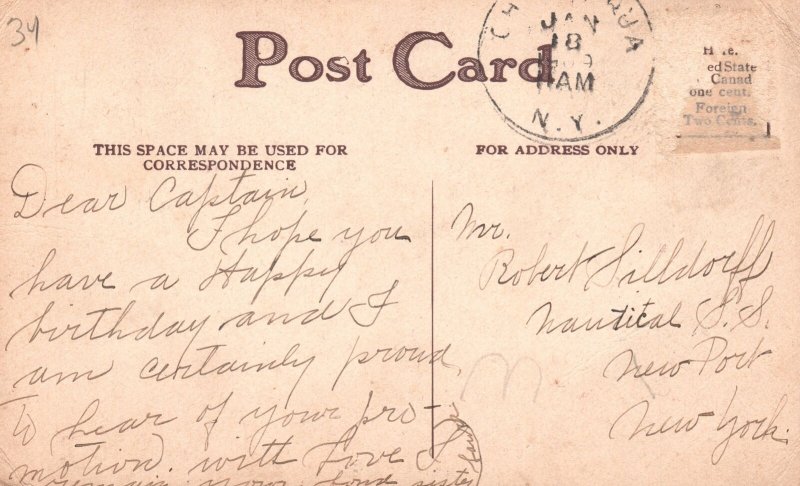 34
Post Card
CH UQUA
JAN
18
1909
11 AM
N.Y.
H re.
ed State
Canad
one cent.
Foreign
Two Cents.
THIS SPACE MAY BE USED FOR
CORRESPONDENCE
FOR ADDRESS ONLY
Dear Captain,
I hope you
have a Happy
birthday and I
am certainly proud
to hear of your pro-
motion. with Love I
remain your fond sister
Mr.
Robert Silldorff
Nautical S.S.
New Port
New York.